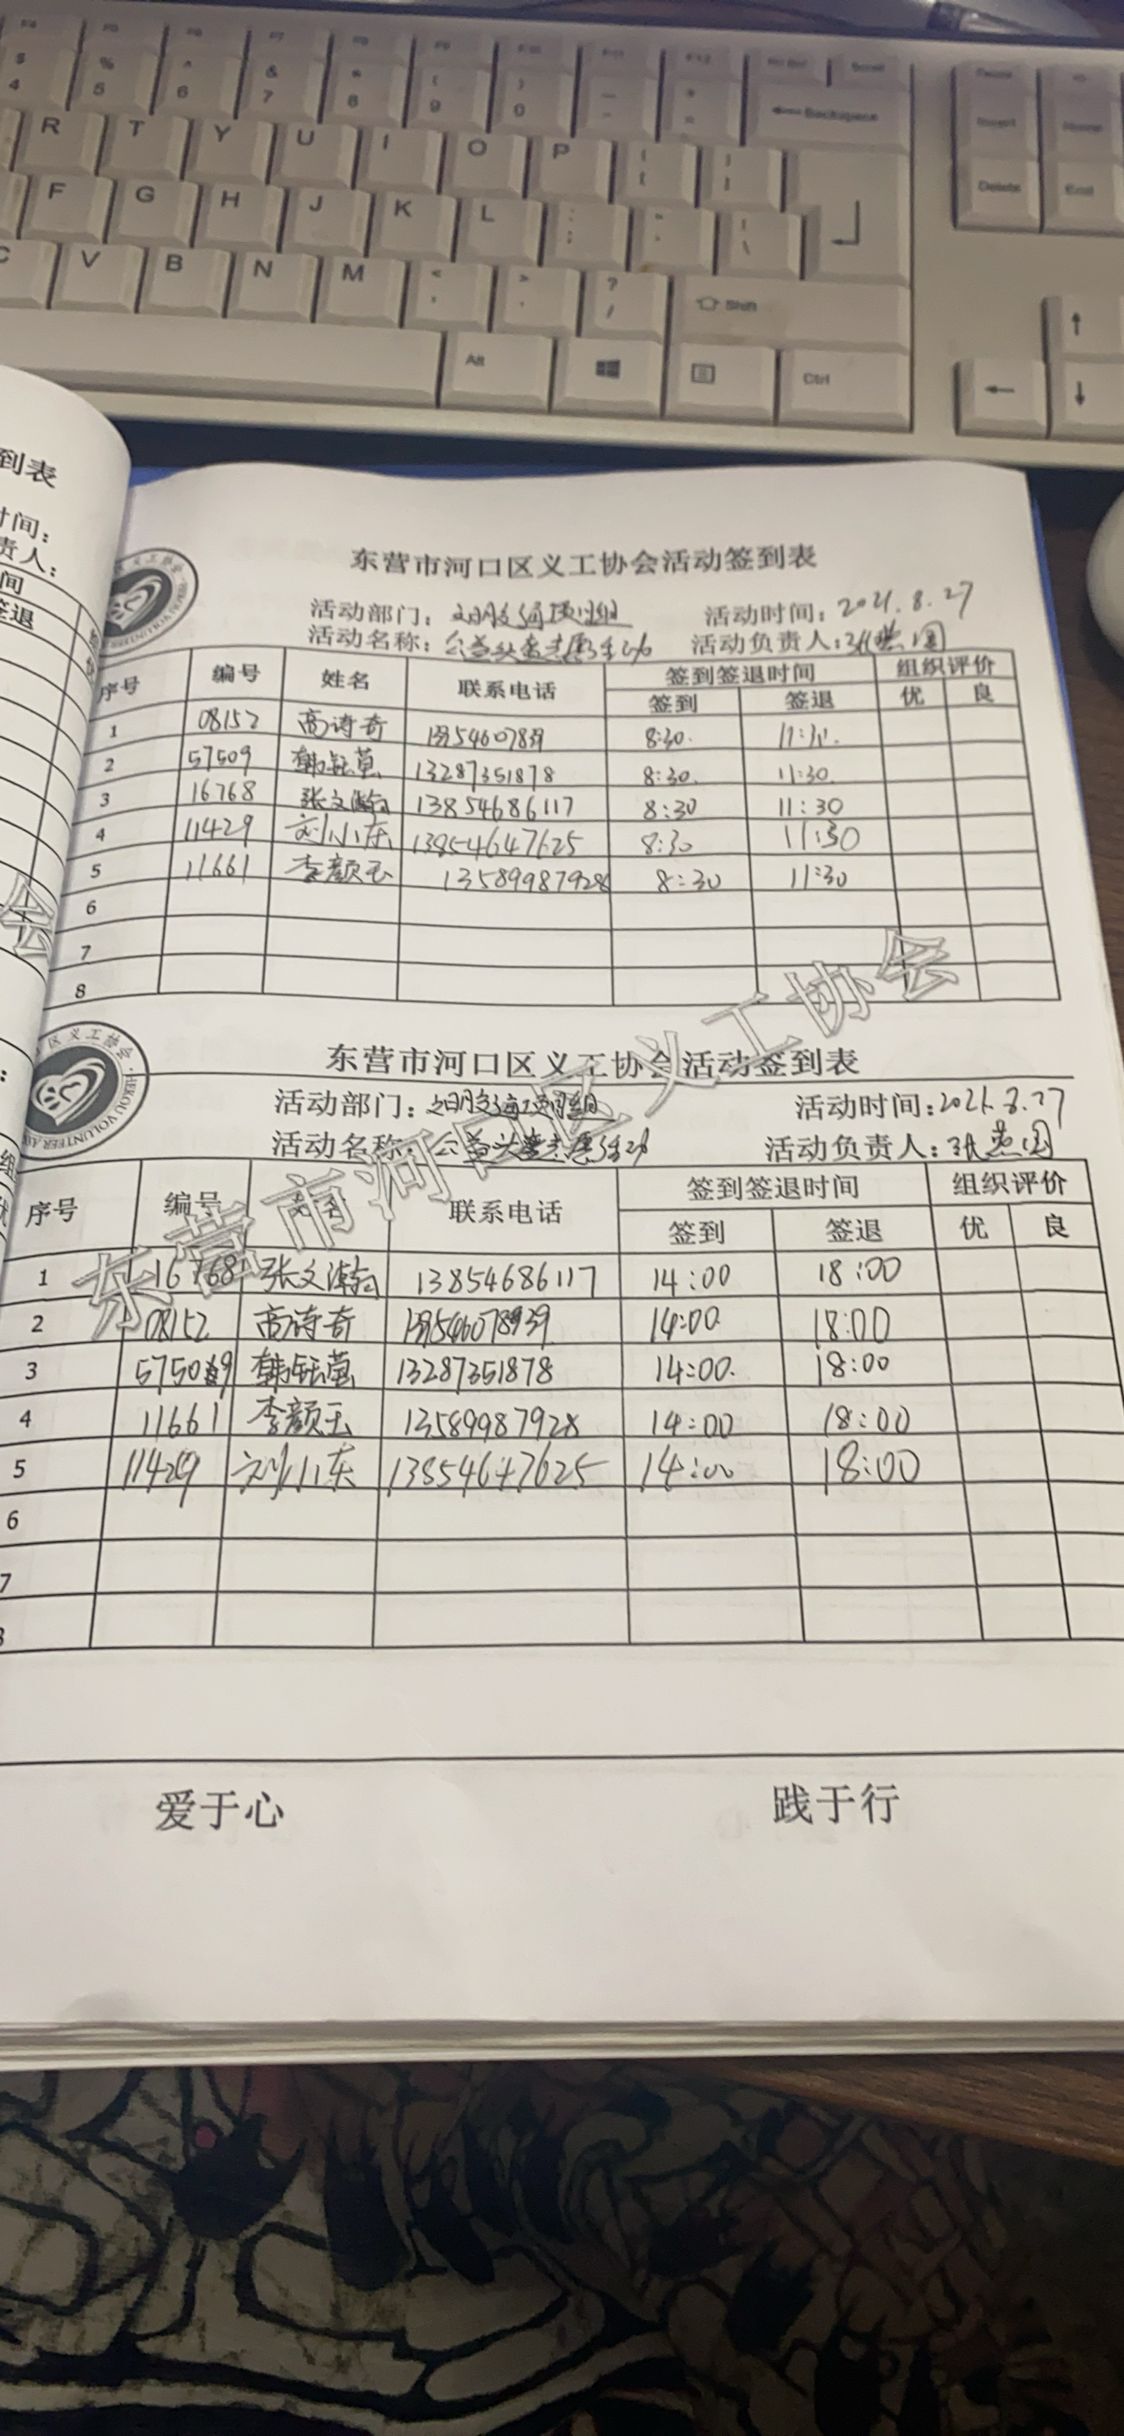 4 5 6 7 8 9 0 Backspace
R T Y U I O P
F G H J K L
Delete End
C V B N M Shift
Alt Ctrl
到表
时间：
责人：
东营市河口区义工协会活动签到表
活动部门： 活动时间：2021.8.27
活动名称： 活动负责人：张燕国
序号 编号 姓名 联系电话 签到签退时间 组织评价
签到 签退 优 良
1 08152 高诗奇 8:30. 11:30.
2 57509 韩钰莹 13287351878 8:30. 11:30.
3 16768 张文瀚 13854686117 8:30 11:30
4 11429 刘小东 13854647625 8:30 11:30
5 11661 李颜玉 13589987928 8:30 11:30
6
7
8
东营市河口区义工协会
东营市河口区义工协会活动签到表
活动部门： 活动时间：2021.8.27
活动名称： 活动负责人：张燕国
序号 编号 联系电话 签到签退时间 组织评价
签到 签退 优 良
1 16768 张文瀚 13854686117 14:00 18:00
2 08152 高诗奇 14:00. 18:00
3 57509 韩钰莹 13287351878 14:00. 18:00
4 11661 李颜玉 13589987928 14:00 18:00
5 11429 刘小东 13854647625 14:00 18:00
6
7
爱于心 践于行